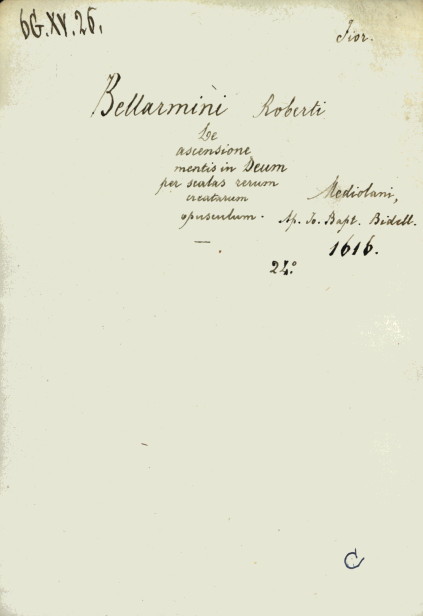 6G.XV.26.
Fior.
Bellarmini Roberti
De
ascensione
mentis in Deum
per scalas rerum
creatarum
opusculum.
Mediolani,
Ap. Jo. Bapt. Bidell.
1616.
24.°
C